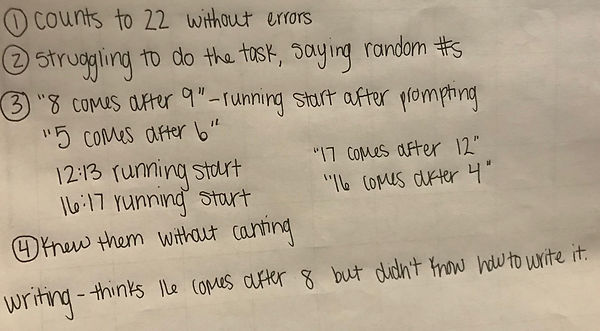 ① counts to 22 without errors
② struggling to do the task, saying random #s
③ "8 comes after 9" - running start after prompting
"5 comes after 6"
12:13 running start
"17 comes after 12"
16:17 running start
"16 comes after 4"
④ Knew them without canting
writing - thinks 16 comes after 8 but didn't know how to write it.